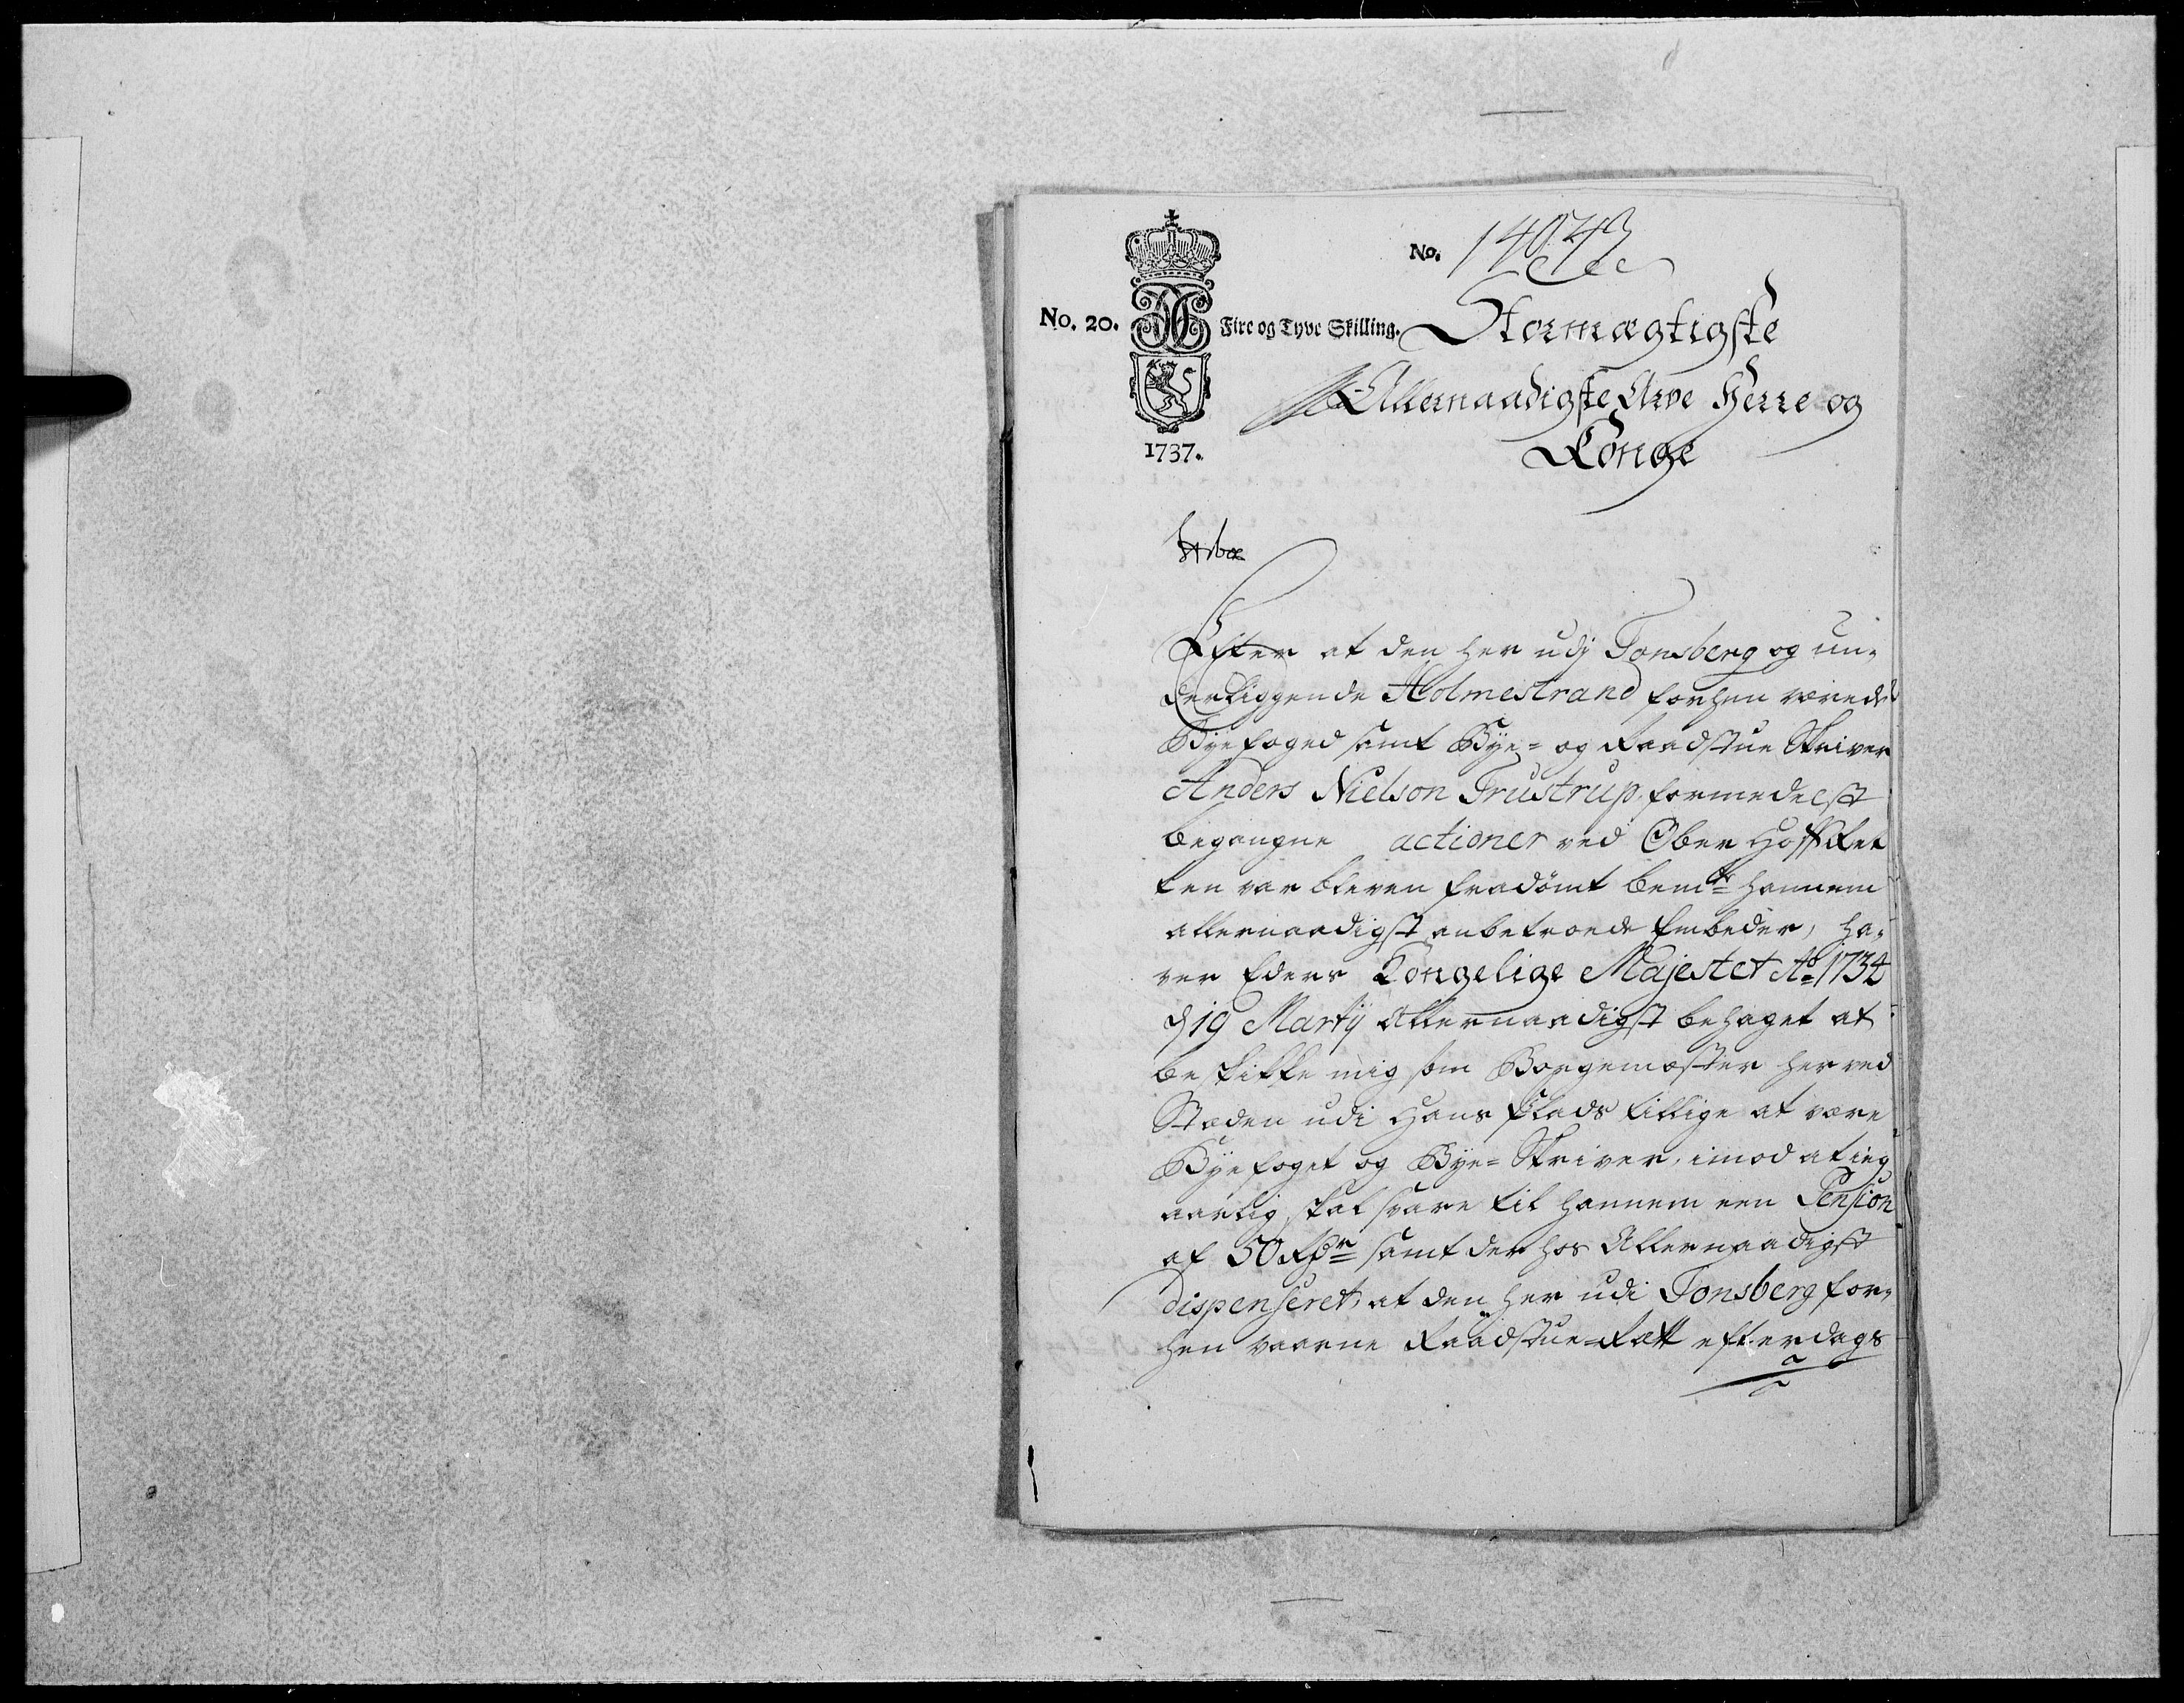 No. 14043
No. 20. Fire og Tyve Skilling. Stormægtigste
Allernaadigste Arve Herre og
Konge
1737.
Efter at den her udj Tonsberg og un-
derliggende Holmestrand forhen værende
Byefoged samt Bye= og Raadstue Skriver
Anders Nielson Trustrup, formedelst
begangne actioner ved Ober Hoff Ret
ten var bleven fradömt bemte hannem
allernaadigst anbetroede Embeder, ha-
ver Eders Kongelige Majestet Ao 1734
d 19 Martij Allernaadigst behaget at
beskikke mig som Borgemester her ved
Stæden udi Hans Stads tillige at være
Byefoget og Bye= Skriver, imod at ieg
aarlig skal svare til hannem een Pension
af 50 Rdr samt der hos Allernaadigst
dispenseret, at den her udi Tonsberg for-
hen vaarne Raadstue-Rætt efterdags